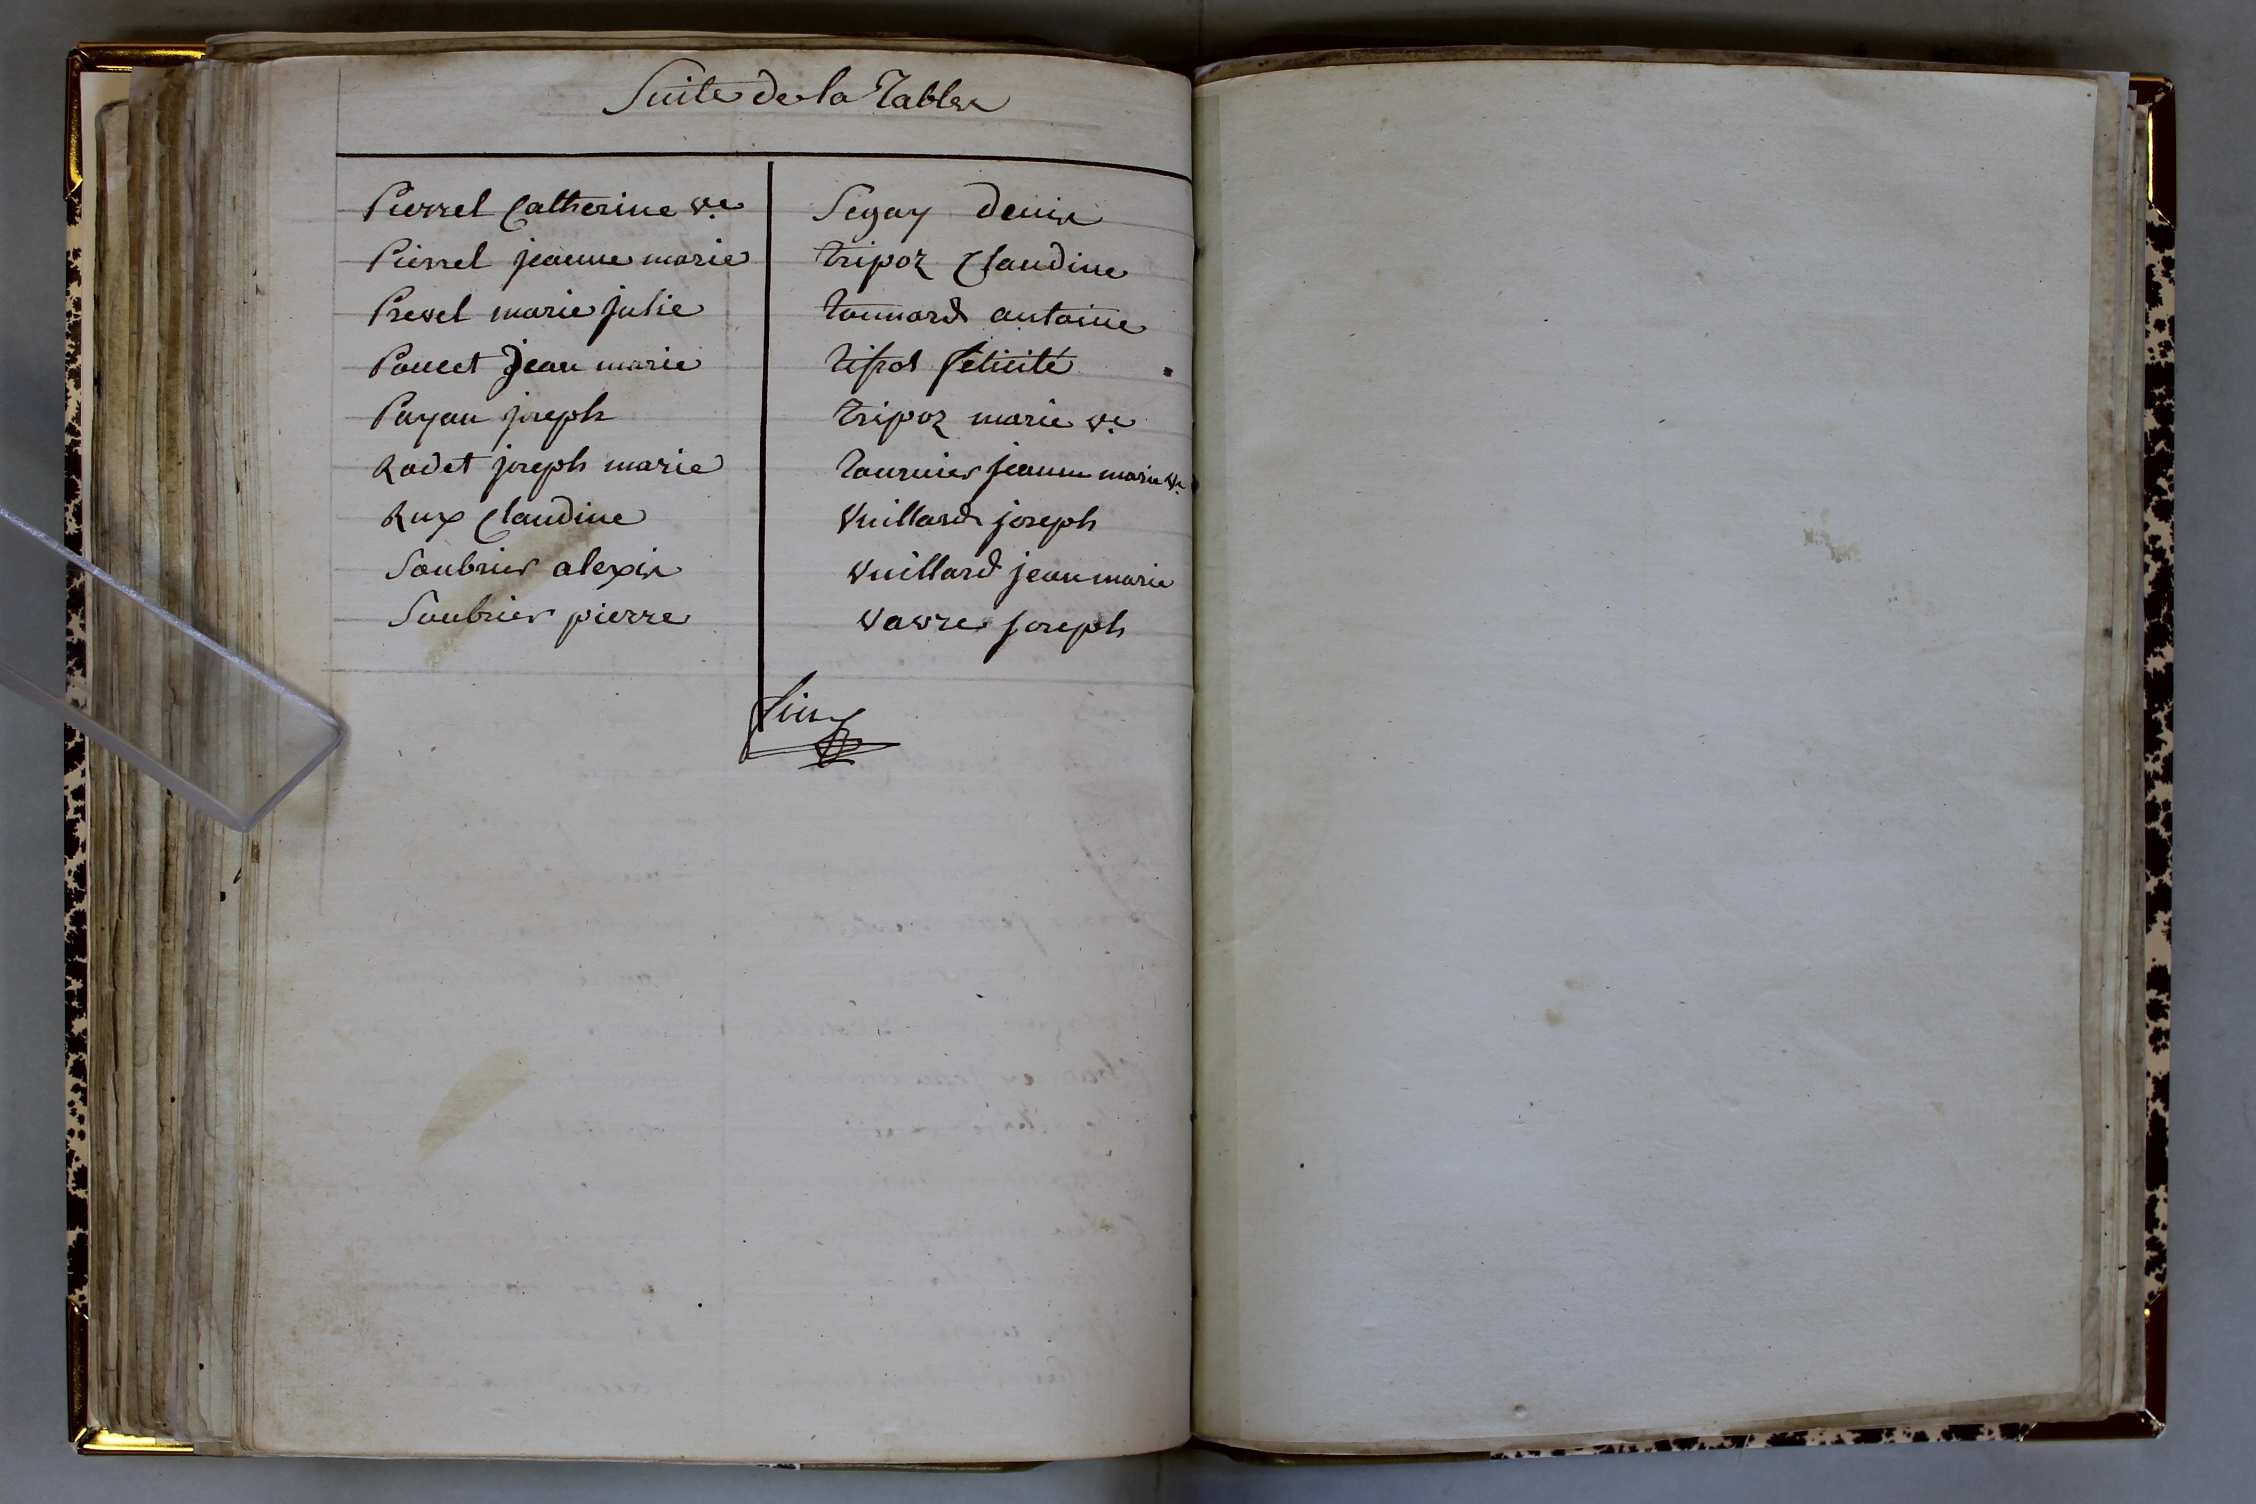 Suite de la Table
Pierrel Catherine ve
Pierrel jeanne marie
Prevel marie julie
Poncet jean marie
Payan joseph
Rodet joseph marie
Rux Claudine
Soubrier alexis
Soubrier pierre
Segay denis
Tripoz Claudine
Tonnard antoine
félicité
Tripoz marie ve
Tournier jeanne marie ve
Vuillard joseph
Vuillard jean marie
Vavre joseph
fin